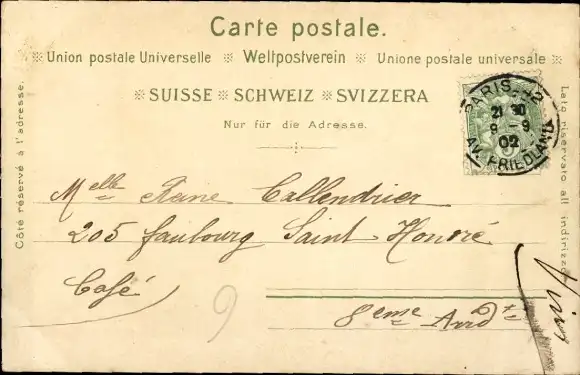 Carte postale.
Union postale Universelle ※ Weltpostverein ※ Unione postale universale ※
※ SUISSE ※ SCHWEIZ ※ SVIZZERA
Nur für die Adresse.
Côté réservé à l'adresse.
Lato riservato all indirizzo
PARIS 42
21 30
9 - 9
02
AV. FRIEDLAND
Melle Callendrier
205 faubourg Saint Honoré
Café
8eme Arrdt
9